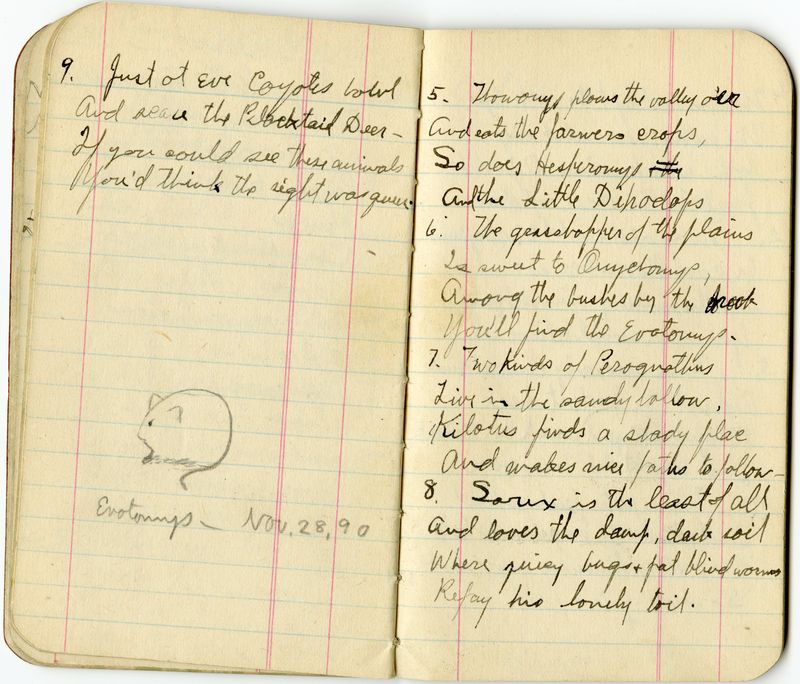 9. Just at Eve Coyotes howl
And scare the Blacktail Deer –
If you could see these animals
You'd think the sight was queer.
Evotomys – Nov. 28, 90
5. Thomomys plows the valley o'er
And eats the farmers crops,
So does Hesperomys
And the Little Dipodops
6. The grasshopper of the plains
Is sweet to Onychomys,
Among the bushes by the brook
You'll find the Evotomys.
7. Two kinds of Perognathus
Live in the sandy hollow,
Kilotus finds a shady place
And makes nice paths to follow –
8. Sorex is the least of all
And loves the damp, dark soil
Where juicy bugs & fat blind worms
Repay his lonely toil.